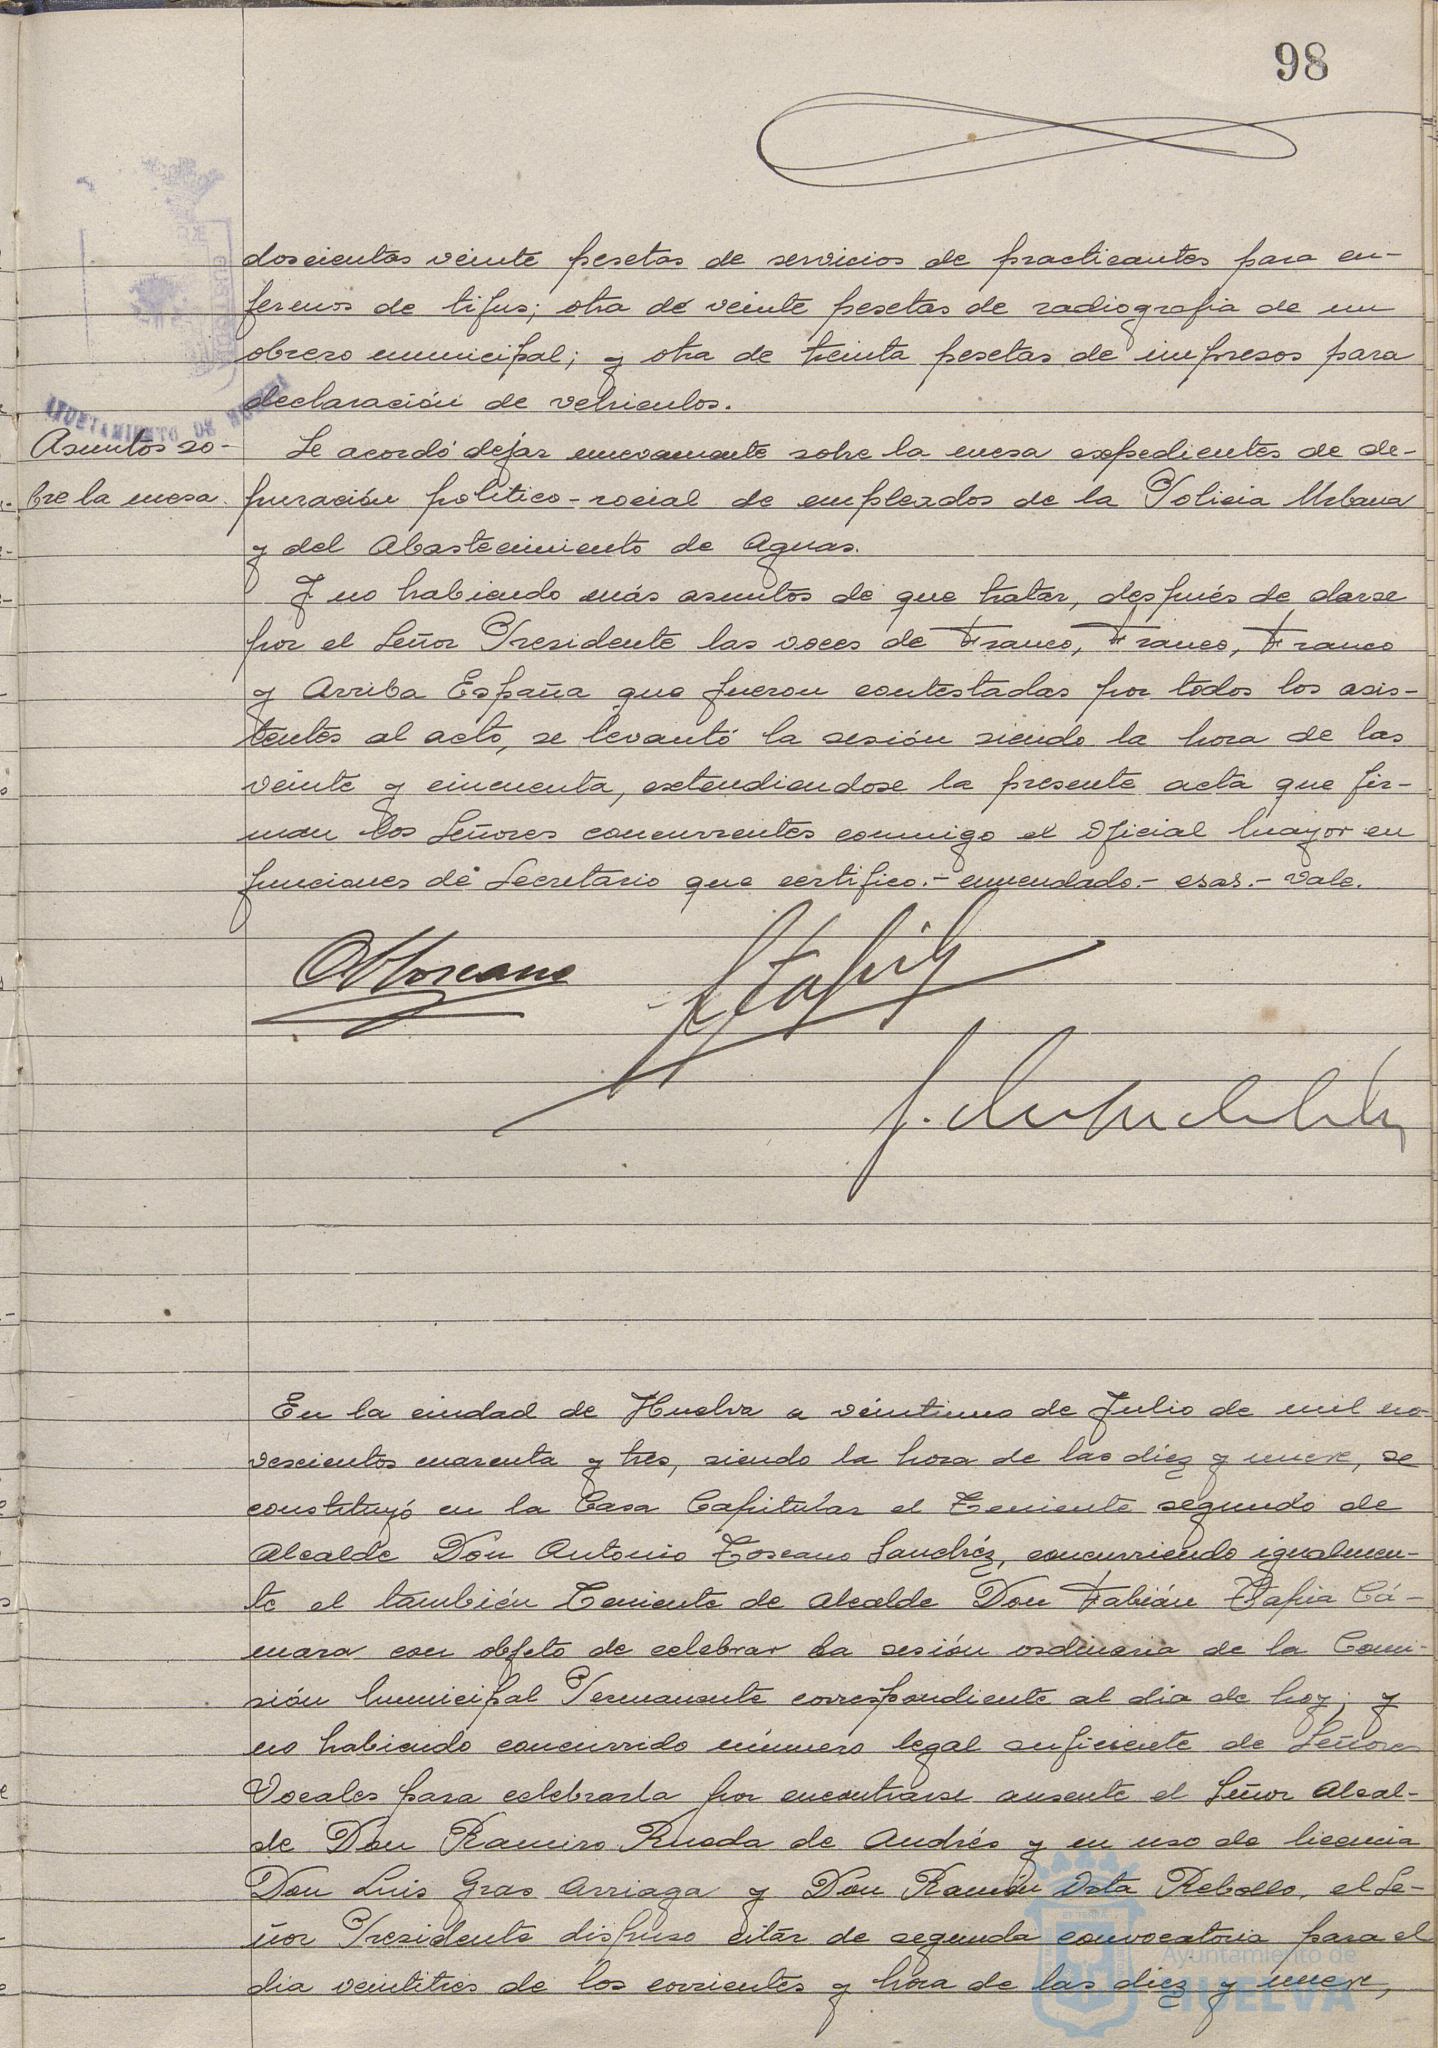 98
doscientas veinte pesetas de servicios de practicantes para en-
fermos de tifus; otra de veinte pesetas de radiografia de un
obrero municipal; y otra de treinta pesetas de impresos para
declaración de vehiculos.
AYUNTAMIENTO DE HUELVA
Asuntos so-
bre la mesa.
Se acordó dejar nuevamente sobre la mesa expedientes de de-
puración politico-social de empleados de la Policia Urbana
y del Abastecimiento de Aguas.
Y no habiendo más asuntos de que tratar, después de darse
por el Señor Presidente las voces de Franco, Franco, Franco
y Arriba España que fueron contestadas por todos los asis-
tentes al acto, se levantó la sesión siendo la hora de las
veinte y cincuenta, extendiendose la presente acta que fir-
man los Señores concurrentes conmigo el Oficial Mayor en
funciones de Secretario que certifico.- enmendado.- esas.- Vale.
AToscano
FTapia
En la ciudad de Huelva a veintiuno de Julio de mil no-
vescientos cuarenta y tres, siendo la hora de las diez y nueve, se
constituyó en la Casa Capitular el Teniente segundo de
Alcalde Don Antonio Toscano Sanchéz, concurriendo igualmen-
te el también Teniente de Alcalde Don Fabián Tapia Cá-
mara con objeto de celebrar la sesión ordinaria de la Comi-
sión Municipal Permanente correspondiente al dia de hoy; y
no habiendo concurrido número legal suficiente de Señores
Vocales para celebrarla por encontrarse ausente el Señor Alcal-
de Don Ramiro Rueda de Andrés y en uso de licencia
Don Luis Gras Arriaga y Don Ramón Osta Rebollo, el Se-
ñor Presidente dispuso citar de segunda convocatoria para el
dia veintitres de los corrientes y hora de las diez y nueve,
Ayuntamiento de
HUELVA